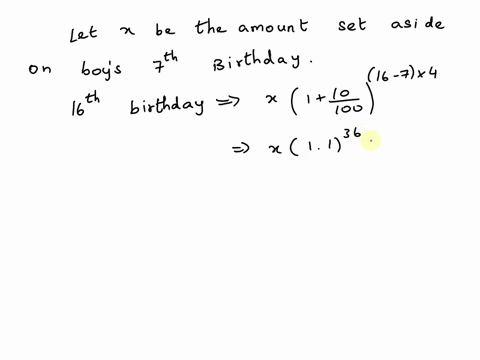 Let x be the amount set aside
on boy's 7th Birthday.
16th birthday => x (1 + 10/100)^(16-7)×4
=> x (1.1)^36